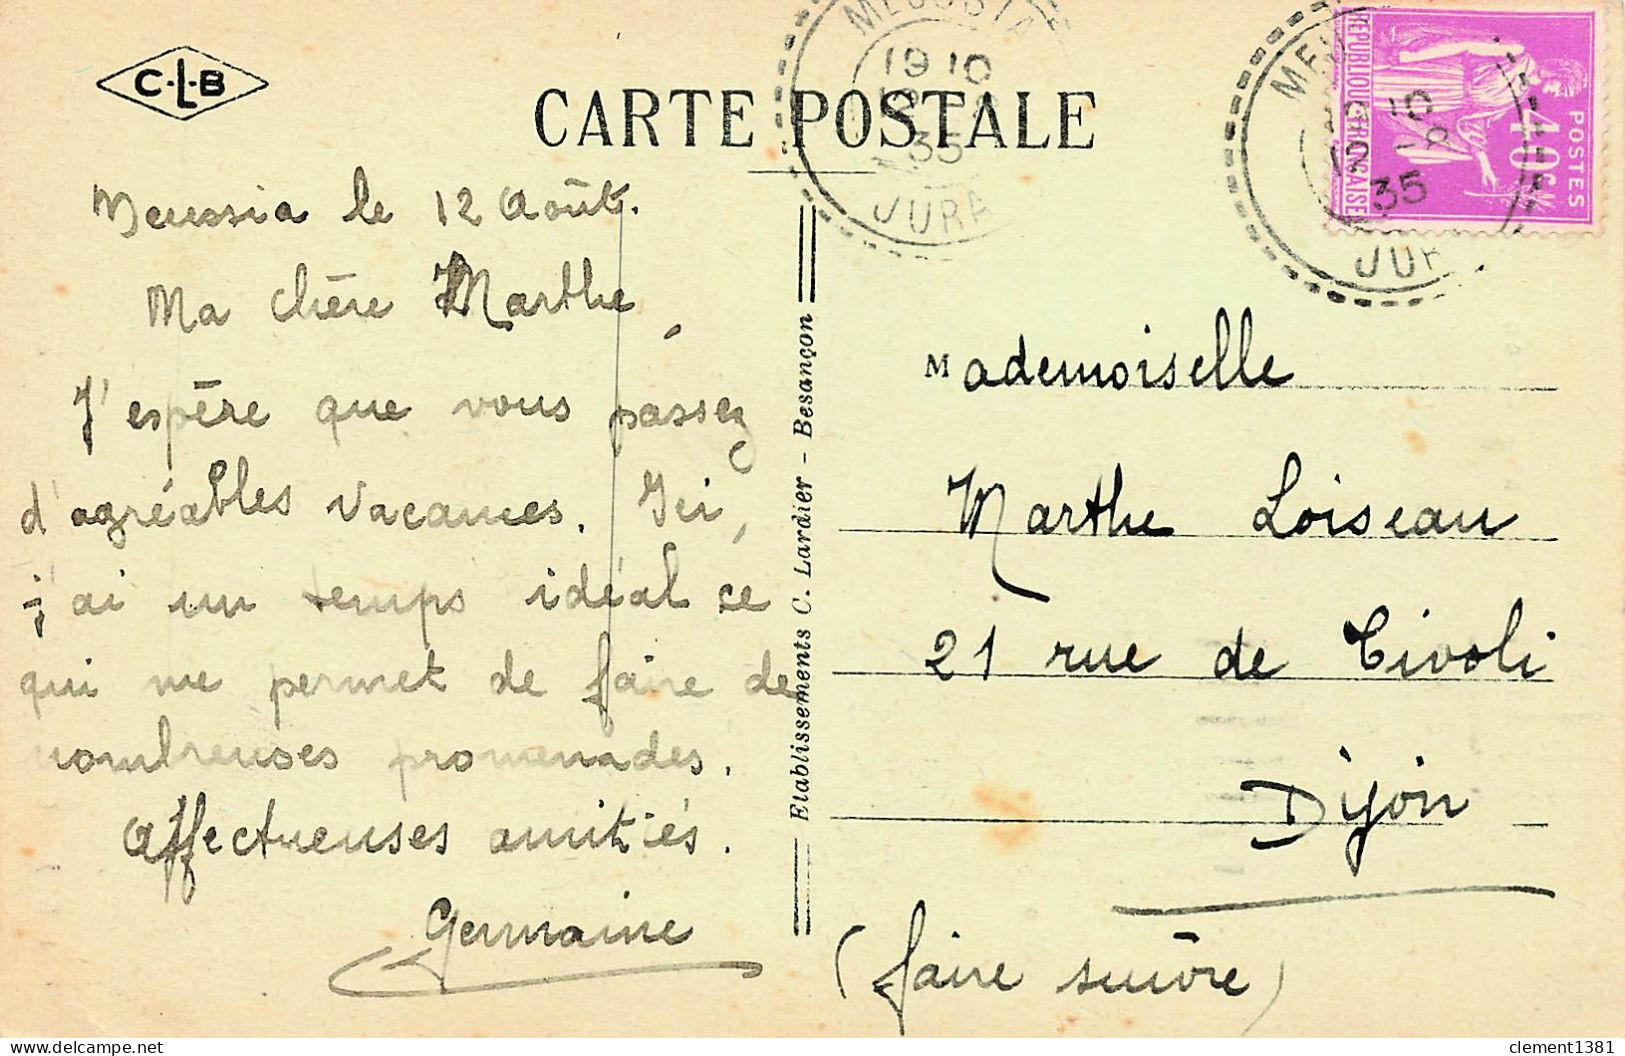 C·L·B
CARTE POSTALE
MEUSSIA
19 10
12 -8
35
JURA
19 10
12 -8
35
JUR
REPUBLIQUE FRANÇAISE
POSTES
40c
Meussia le 12 Août.
Ma chère Marthe,
J'espère que vous passez
d'agréables vacances. Ici,
j'ai un temps idéal ce
qui me permet de faire de
nombreuses promenades.
Affectueuses amitiés.
Germaine
Etablissements C. Lardier - Besançon
Mademoiselle
Marthe Loiseau
21 rue de Tivoli
Dijon
(faire suivre)
clement1381